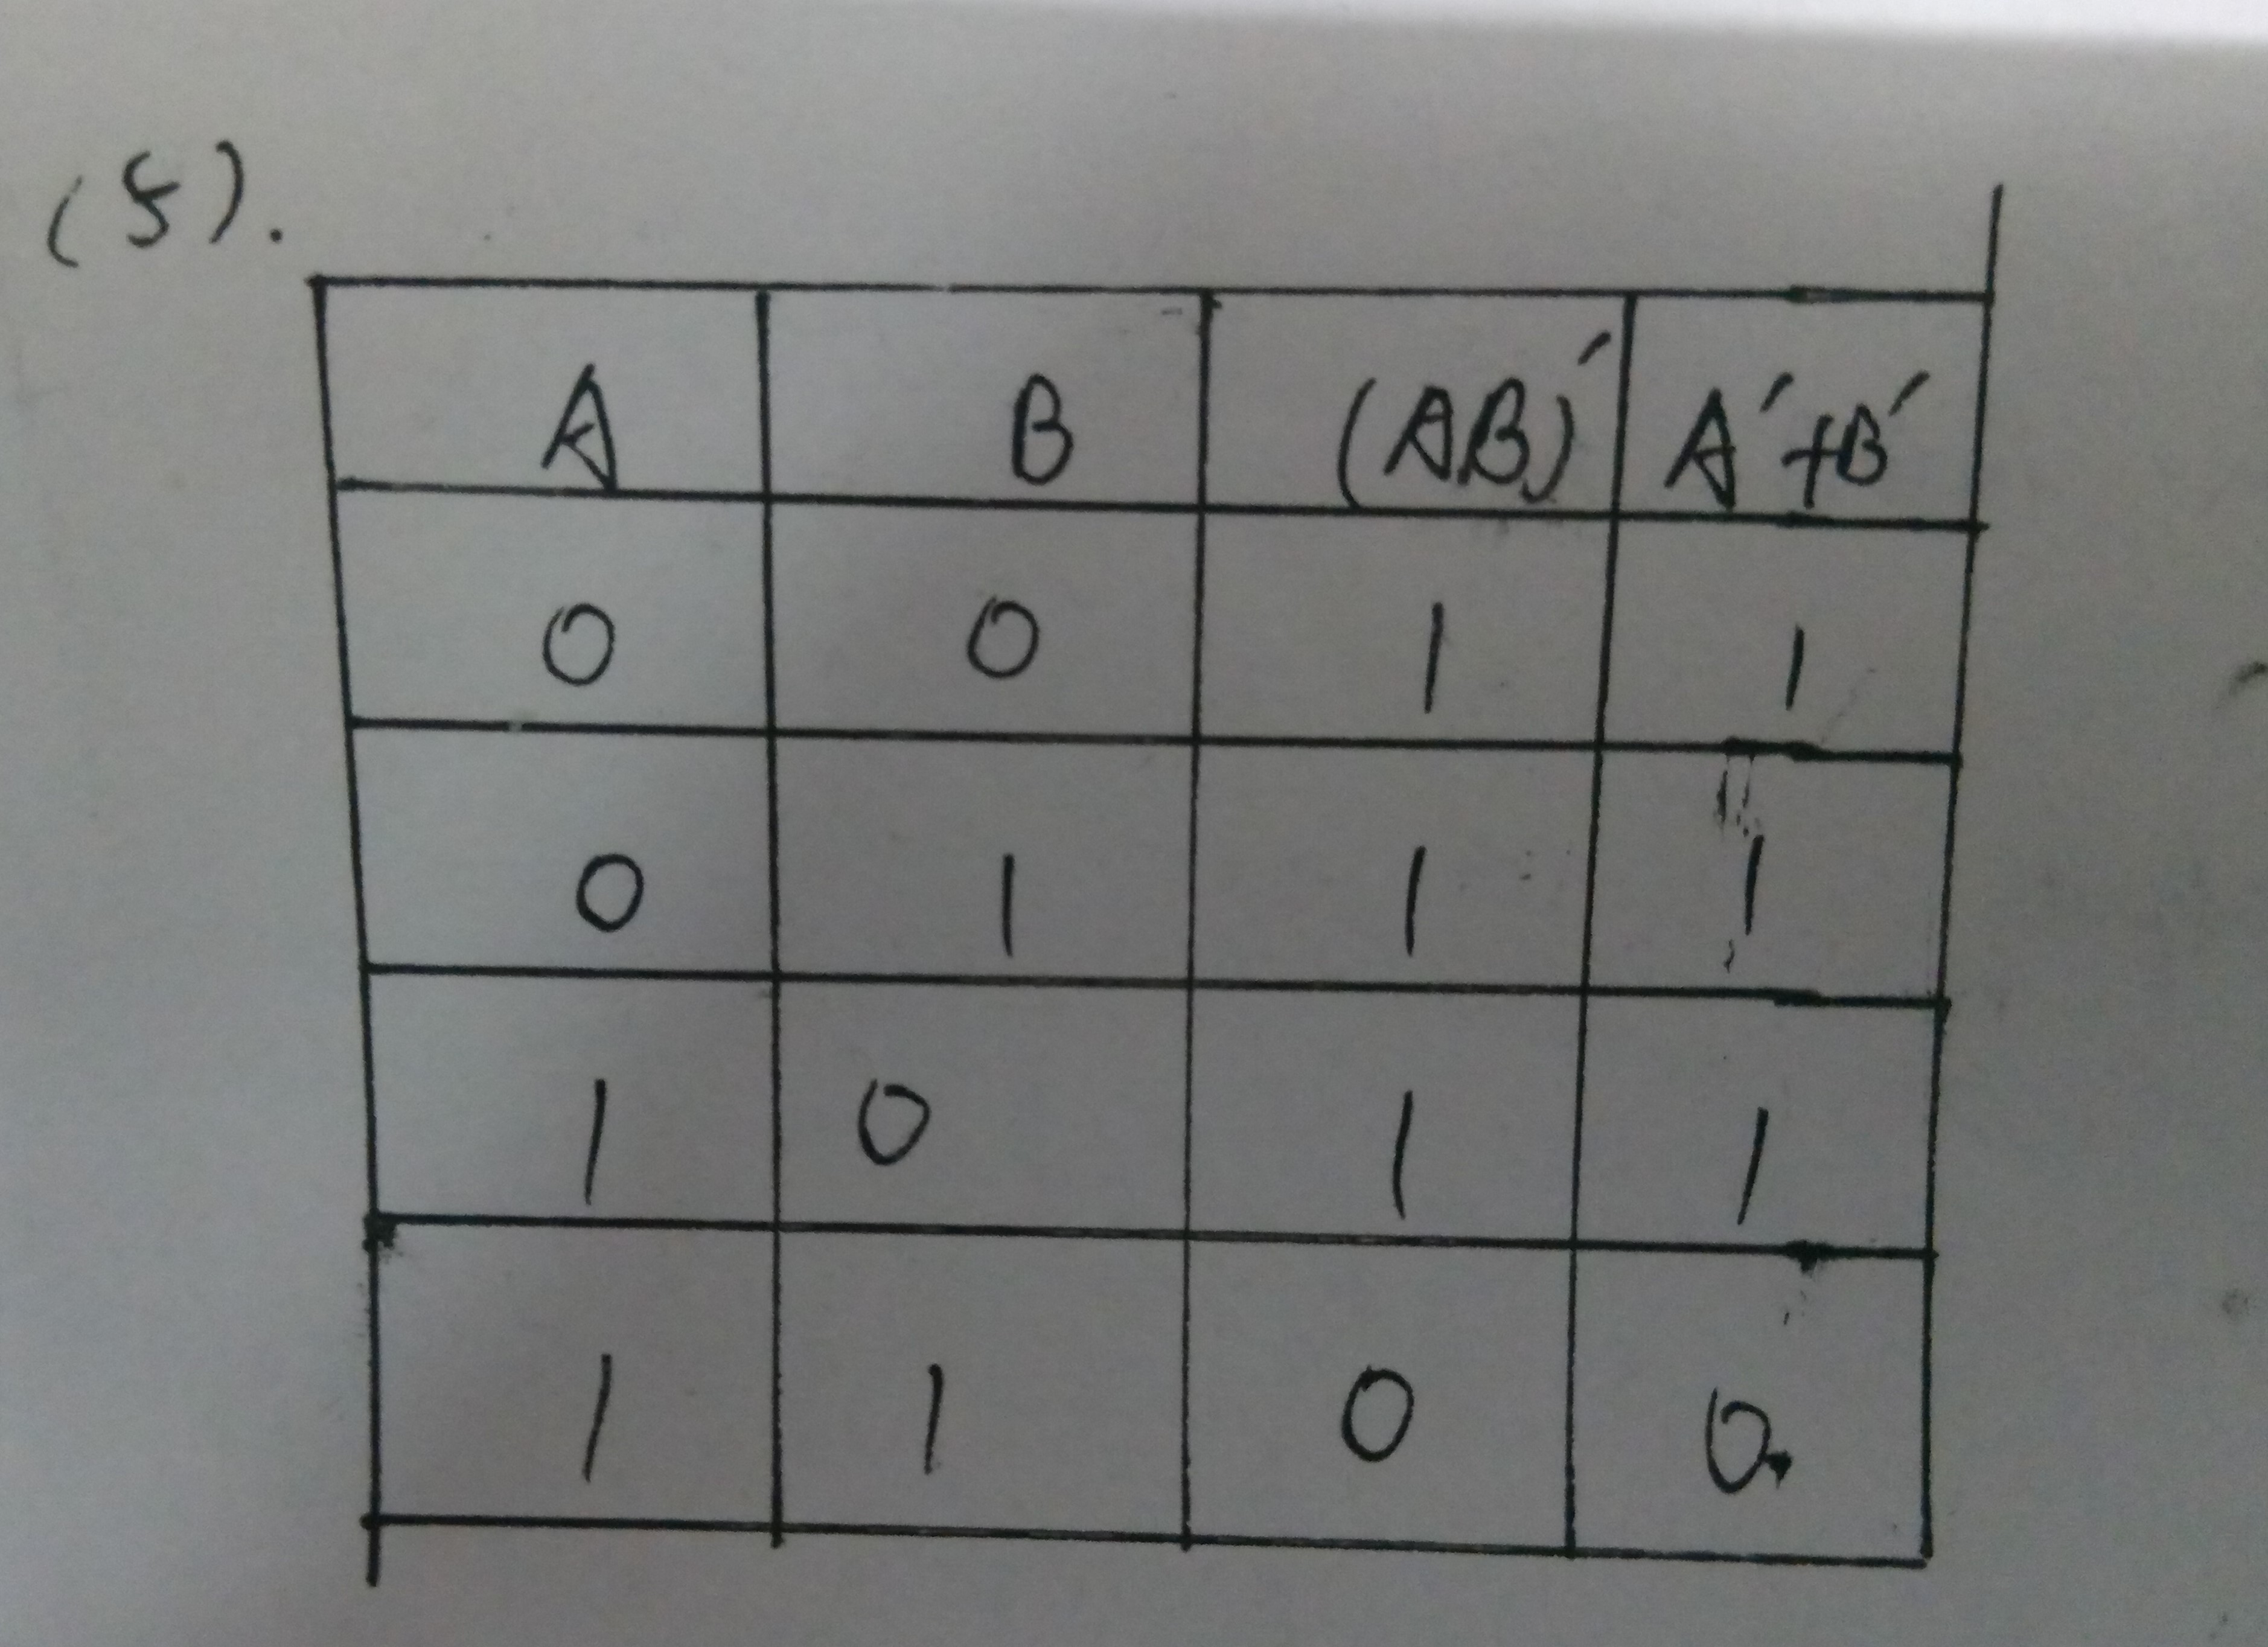 (5).
A B (AB)′ A′+B′
0 0 1 1
0 1 1 1
1 0 1 1
1 1 0 0.